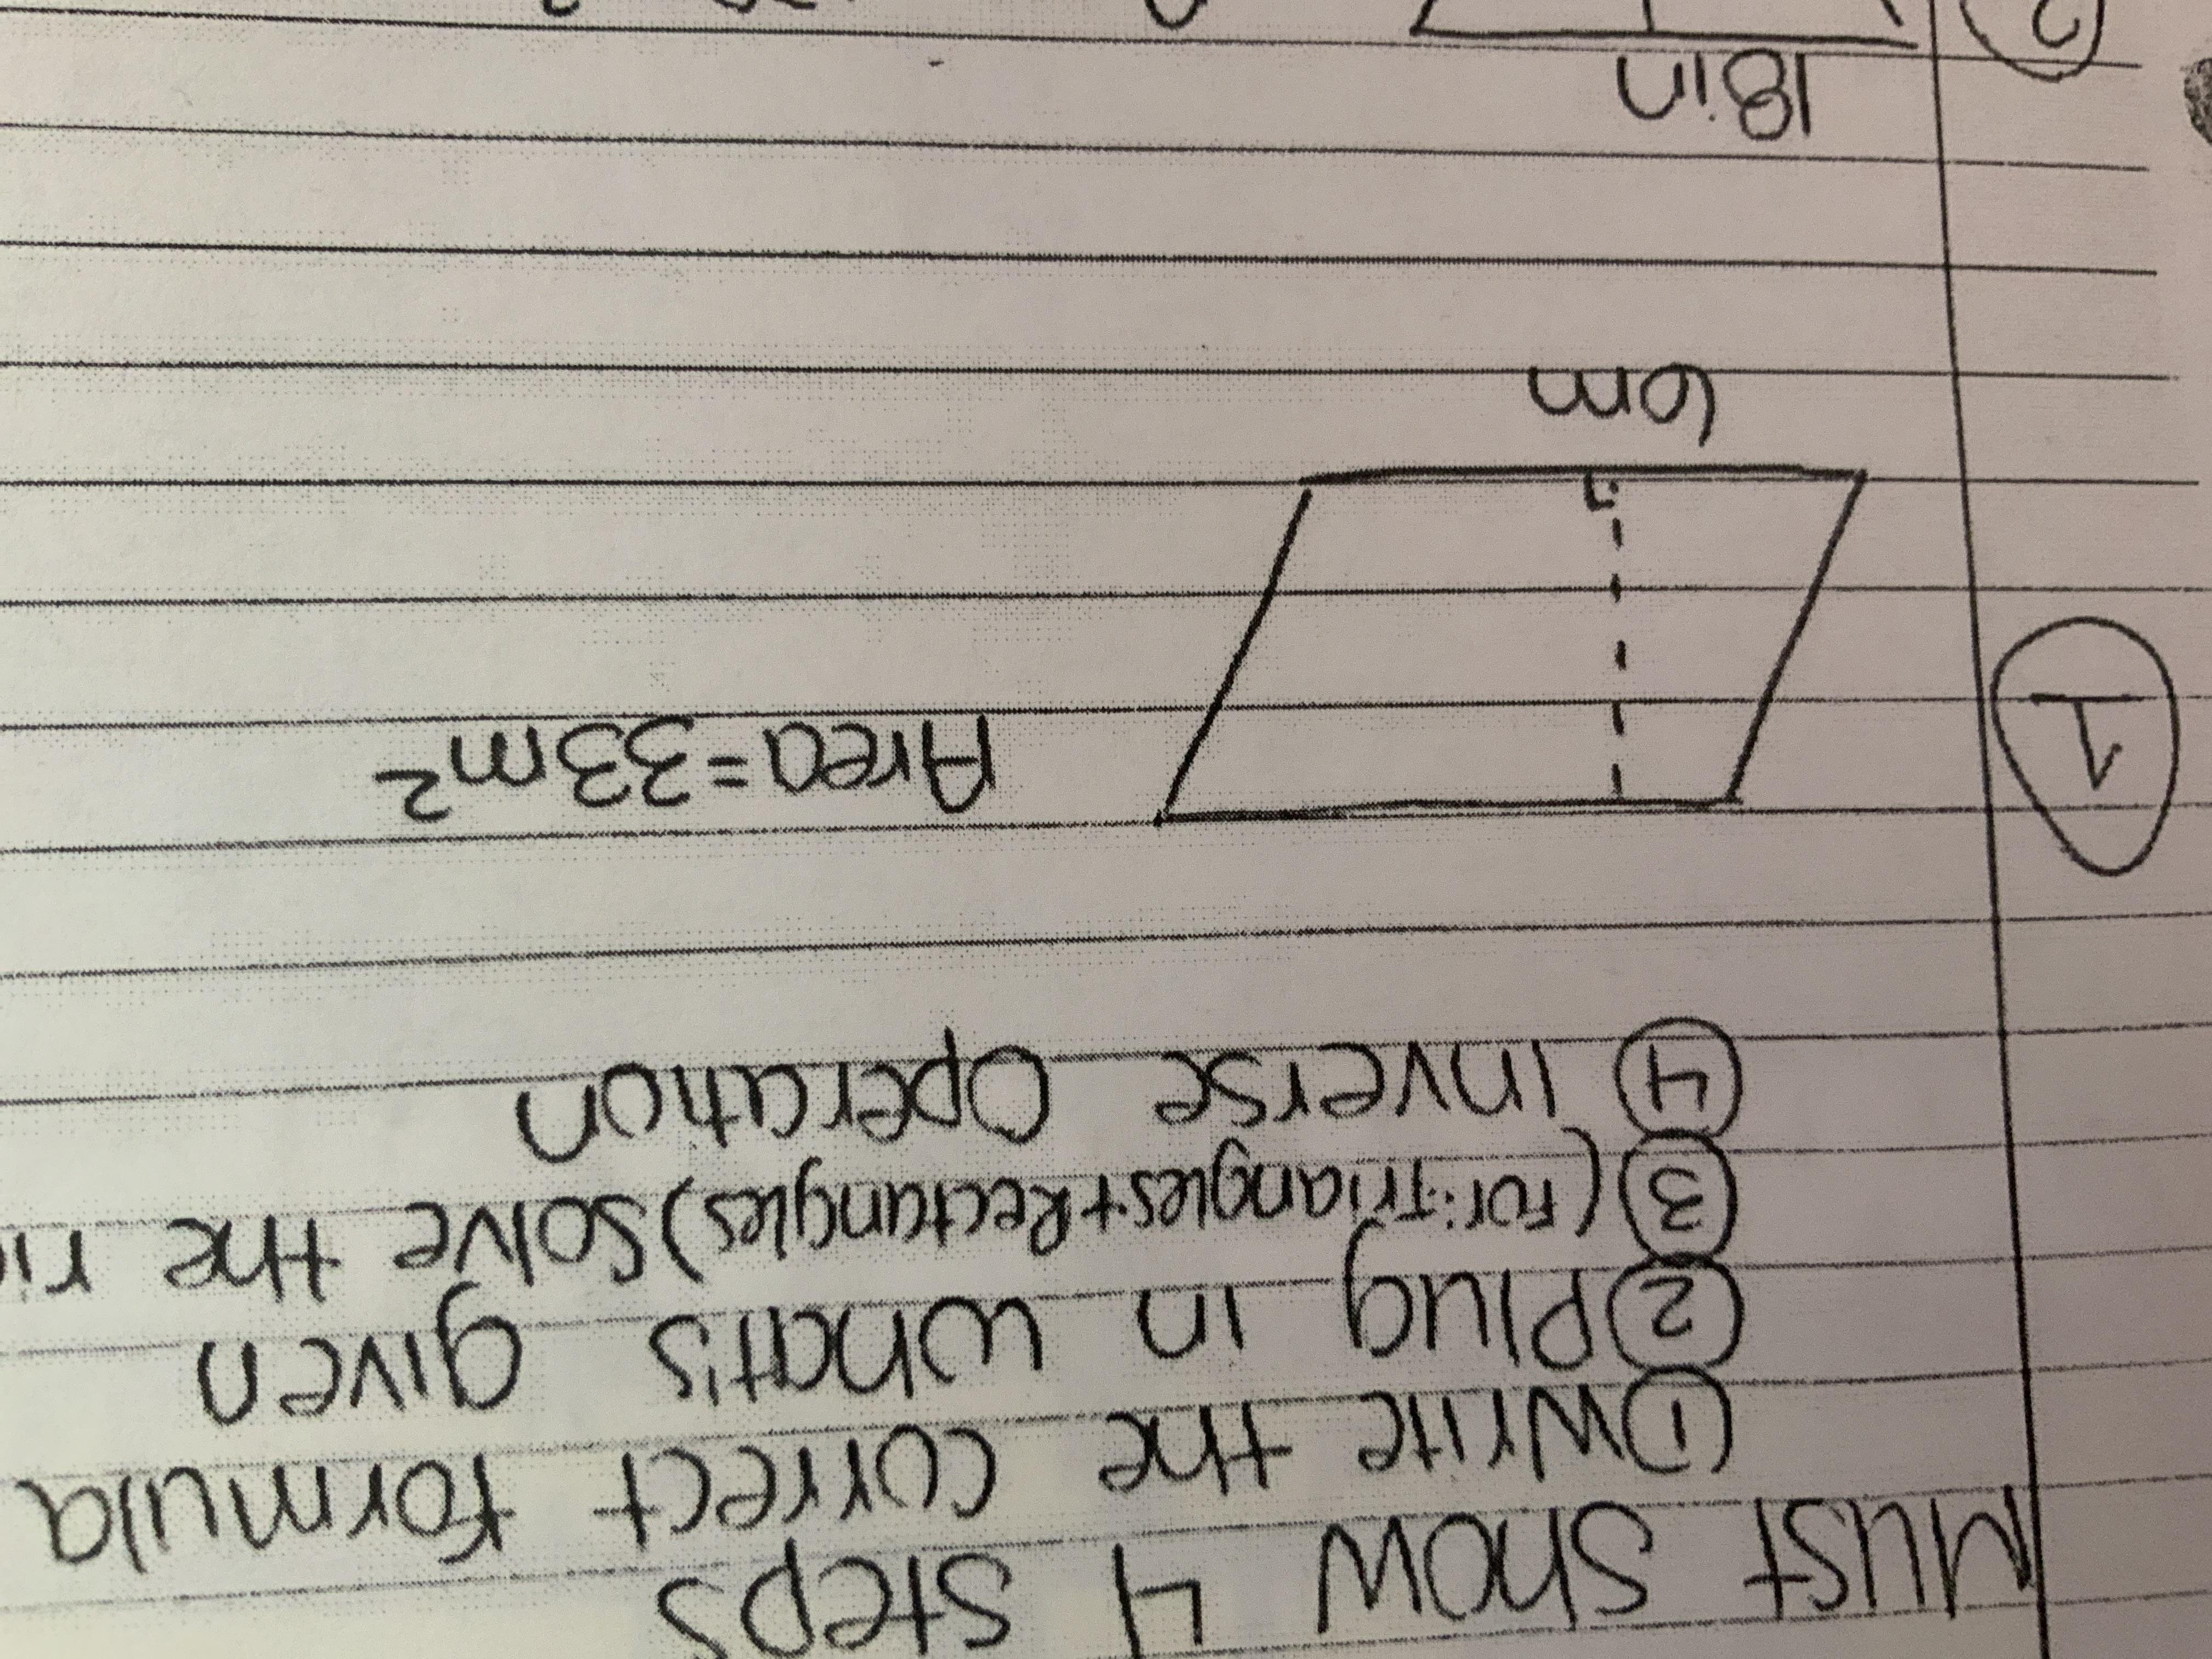 Must show 4 steps
① Write the correct formula
② Plug in what's given
③ (for: Triangles + Rectangles) solve the
④ inverse operation
1
Area = 33m²
6m
2
18in